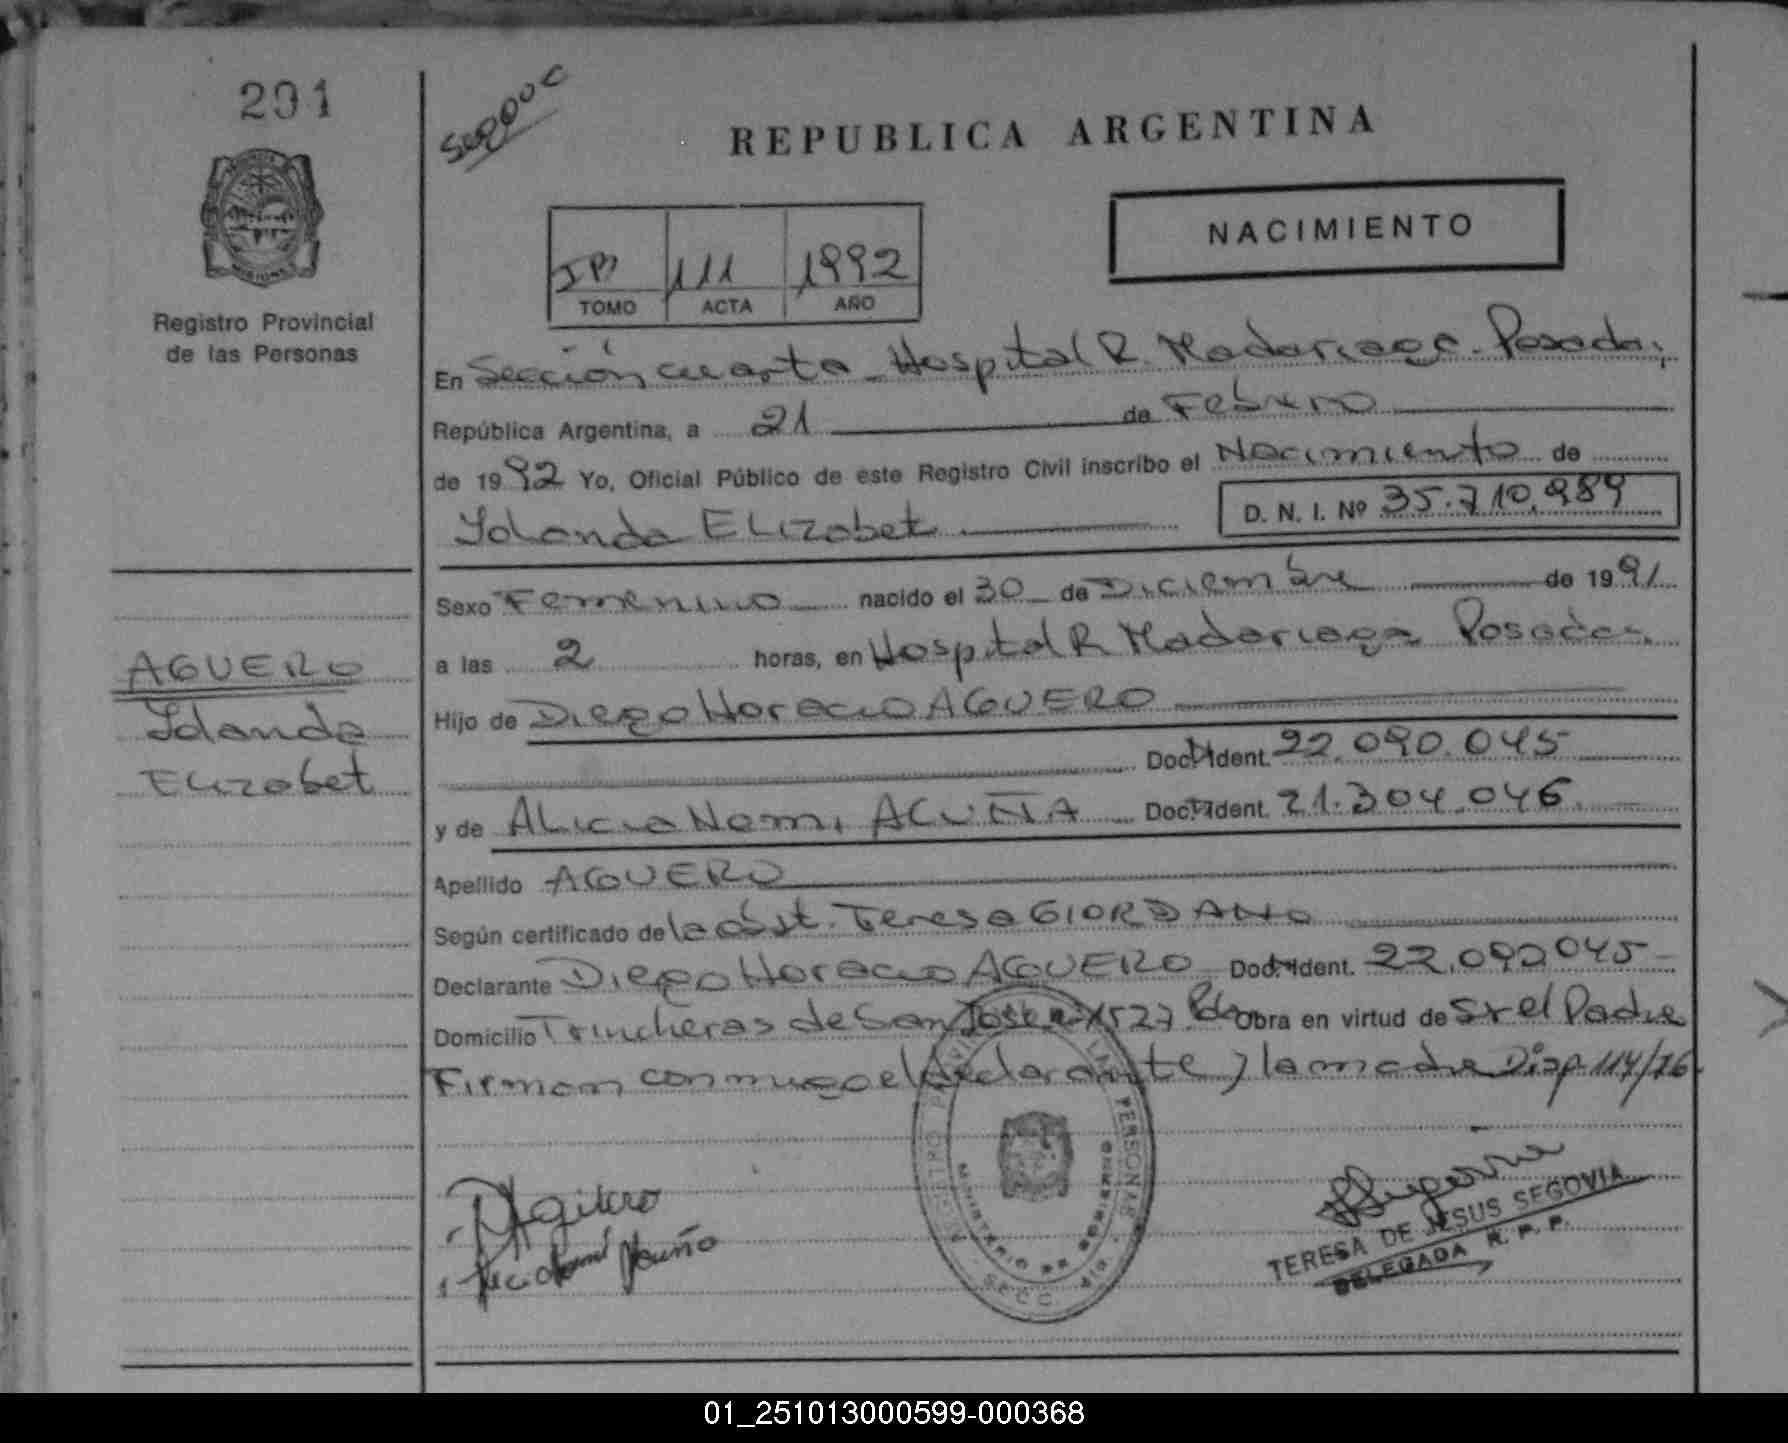 201
Registro Provincial
de las Personas
REPUBLICA ARGENTINA
NACIMIENTO
111 1992
TOMO ACTA AÑO
En Sección cuarta - Hospital R. Madariaga - Posadas,
República Argentina, a 21 de Febrero
de 1992 Yo, Oficial Público de este Registro Civil inscribo el Nacimiento de
Yolanda ELIZabet D. N. I. Nº 35.710.989
Sexo Femenino nacido el 30 de Diciembre de 1991
a las 2 horas, en Hospital R Madariaga Posadas
AGUERO
Yolanda
ELIZabet
Hijo de Diego Horacio AGUERO
Doc. Ident. 22.090.045
y de ALicia Noemi ACUÑA Doc. Ident. 21.304.046
Apellido AGUERO
Según certificado de la obst. Teresa GIORDANO
Declarante Diego Horacio AGUERO Doc. Ident. 22.090.045
Domicilio Trincheras de San José 1527 Pdas Obra en virtud de Sr el Padre
Firman conmigo el declarante y la madre Disp. 114/76
DAgüero
Acuña
TERESA DE JESUS SEGOVIA
DELEGADA R. P. P.
MINISTERIO DE GOBIERNO
01_251013000599-000368